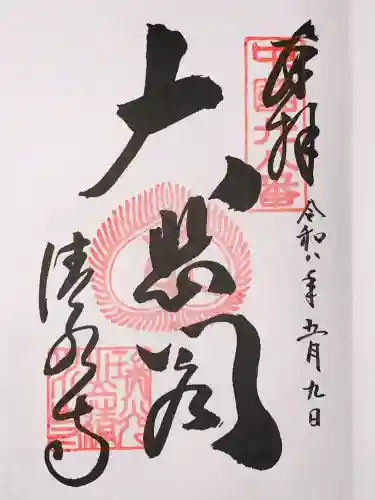 奉拝
中國十八番
令和八年五月九日
大悲閣
清水寺